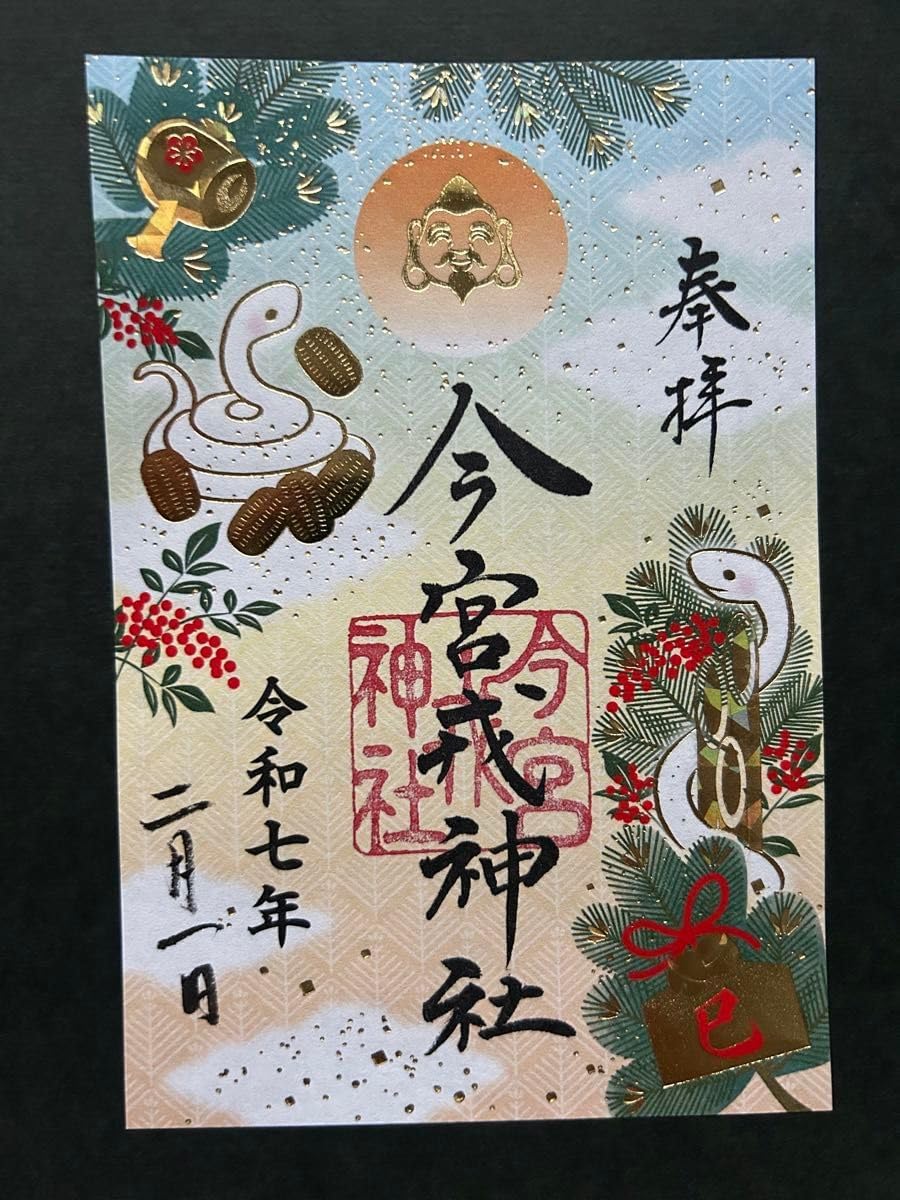 奉拝
今宮戎神社
今宮
戎
神社
令和七年
二月一日
巳